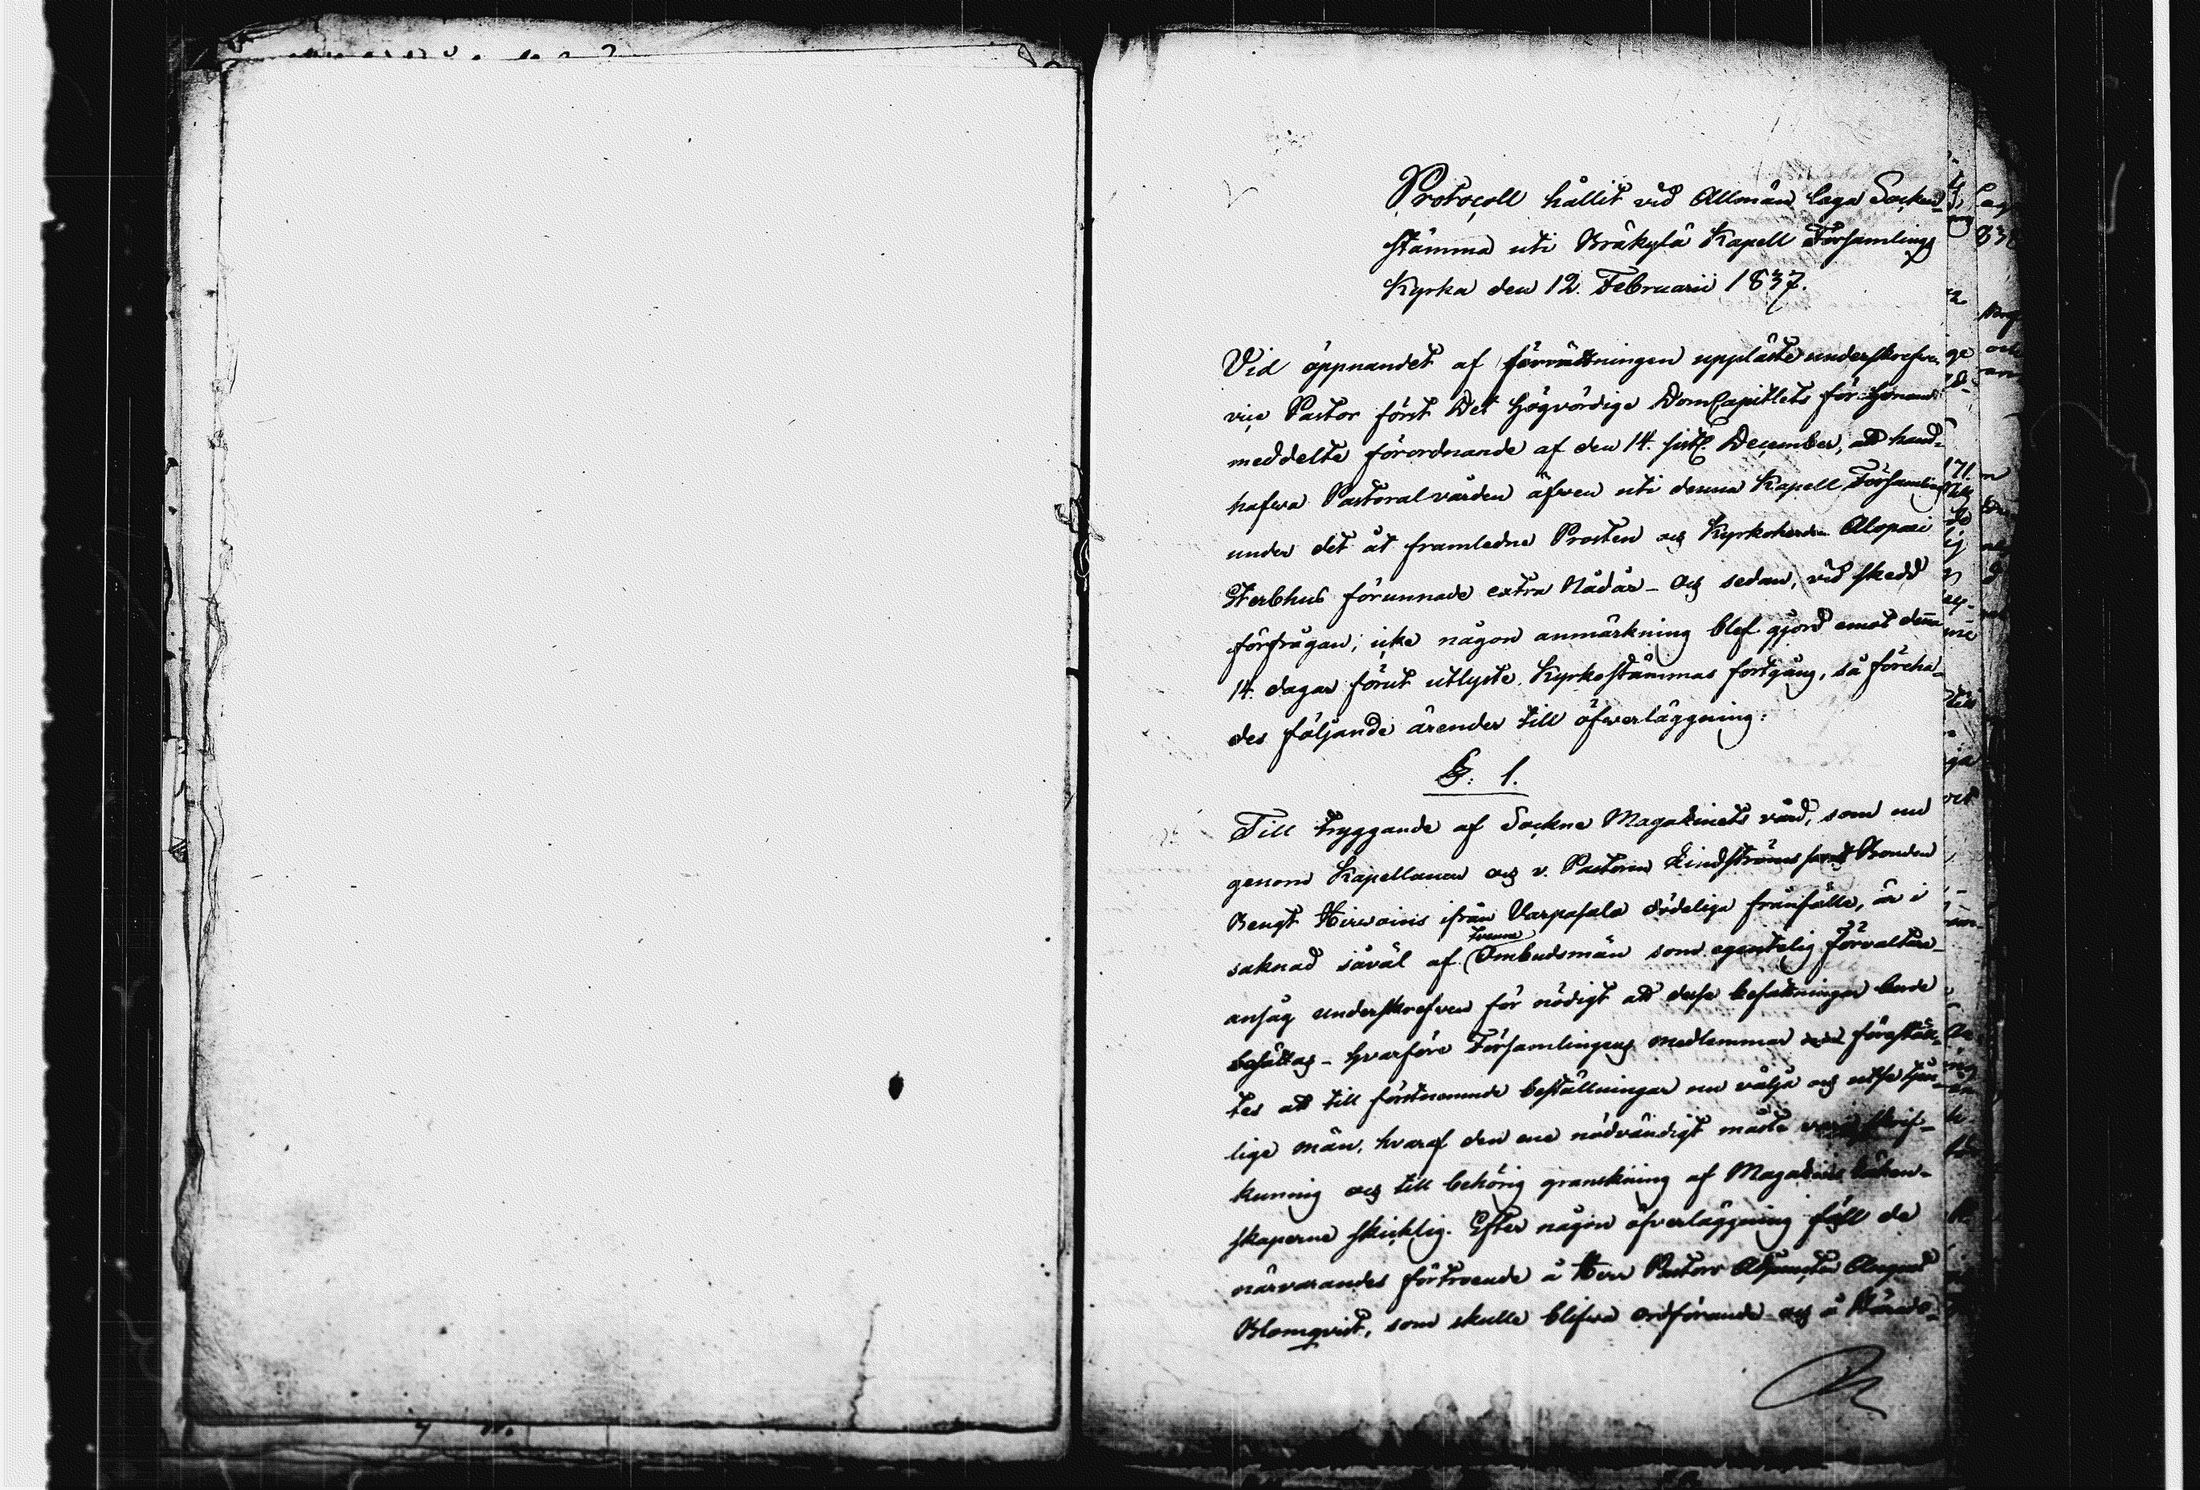 Protocoll hållit vid Allmän laga Socken-
stämma uti Bräkylä Kapell Församlings
Kyrka den 12. Februarii 1837.
Vid öppnandet af förrättningen uppläste underskrefne
vice Pastor först Det Högvördige DomCapitlets för Honom
meddelte förordnande af den 14. sistl. December, att hand-
hafwa Pastoralvården äfven uti denna Kapell Församling
under det åt framledne Prosten och Kyrkoherden Alopæi
Sterbhus förunnade extra Nådår - Och sedan, vid skedd
förfrågan, icke någon anmärkning blef gjord emot denna
14. dagar förut utlyste Kyrkostämmas fortgång, så föreha-
des följande ärender till öfwerläggning:
§. 1.
Till tryggande af Sockne Magazinets vård, som nu
genom Kapellanen och v. Pastoren Lindströms samt Bonden
Bengt Hirvoinis ifrån Varpasalo dödeliga frånfälle, är i
saknad såväl af tvenne Ombudsmän som egentelig förvaltare
ansåg underskrefven för nödigt att desse befattningar borde
besättas - Hvarföre Församlingens medlemmar föreställ-
tes att till förstnemnde beställningar nu välja och utse tjen-
lige män, hvaraf den ene nödvändigt måste vara skrif-
kunnig och till behörig granskning af Magazins räken-
skaperne skicklig. Efter någon öfverläggning föll de
närvarandes förtroende å Herr Pastors Adjuncten August
Blomqvist, som skulle blifva ordförande och å Härads-